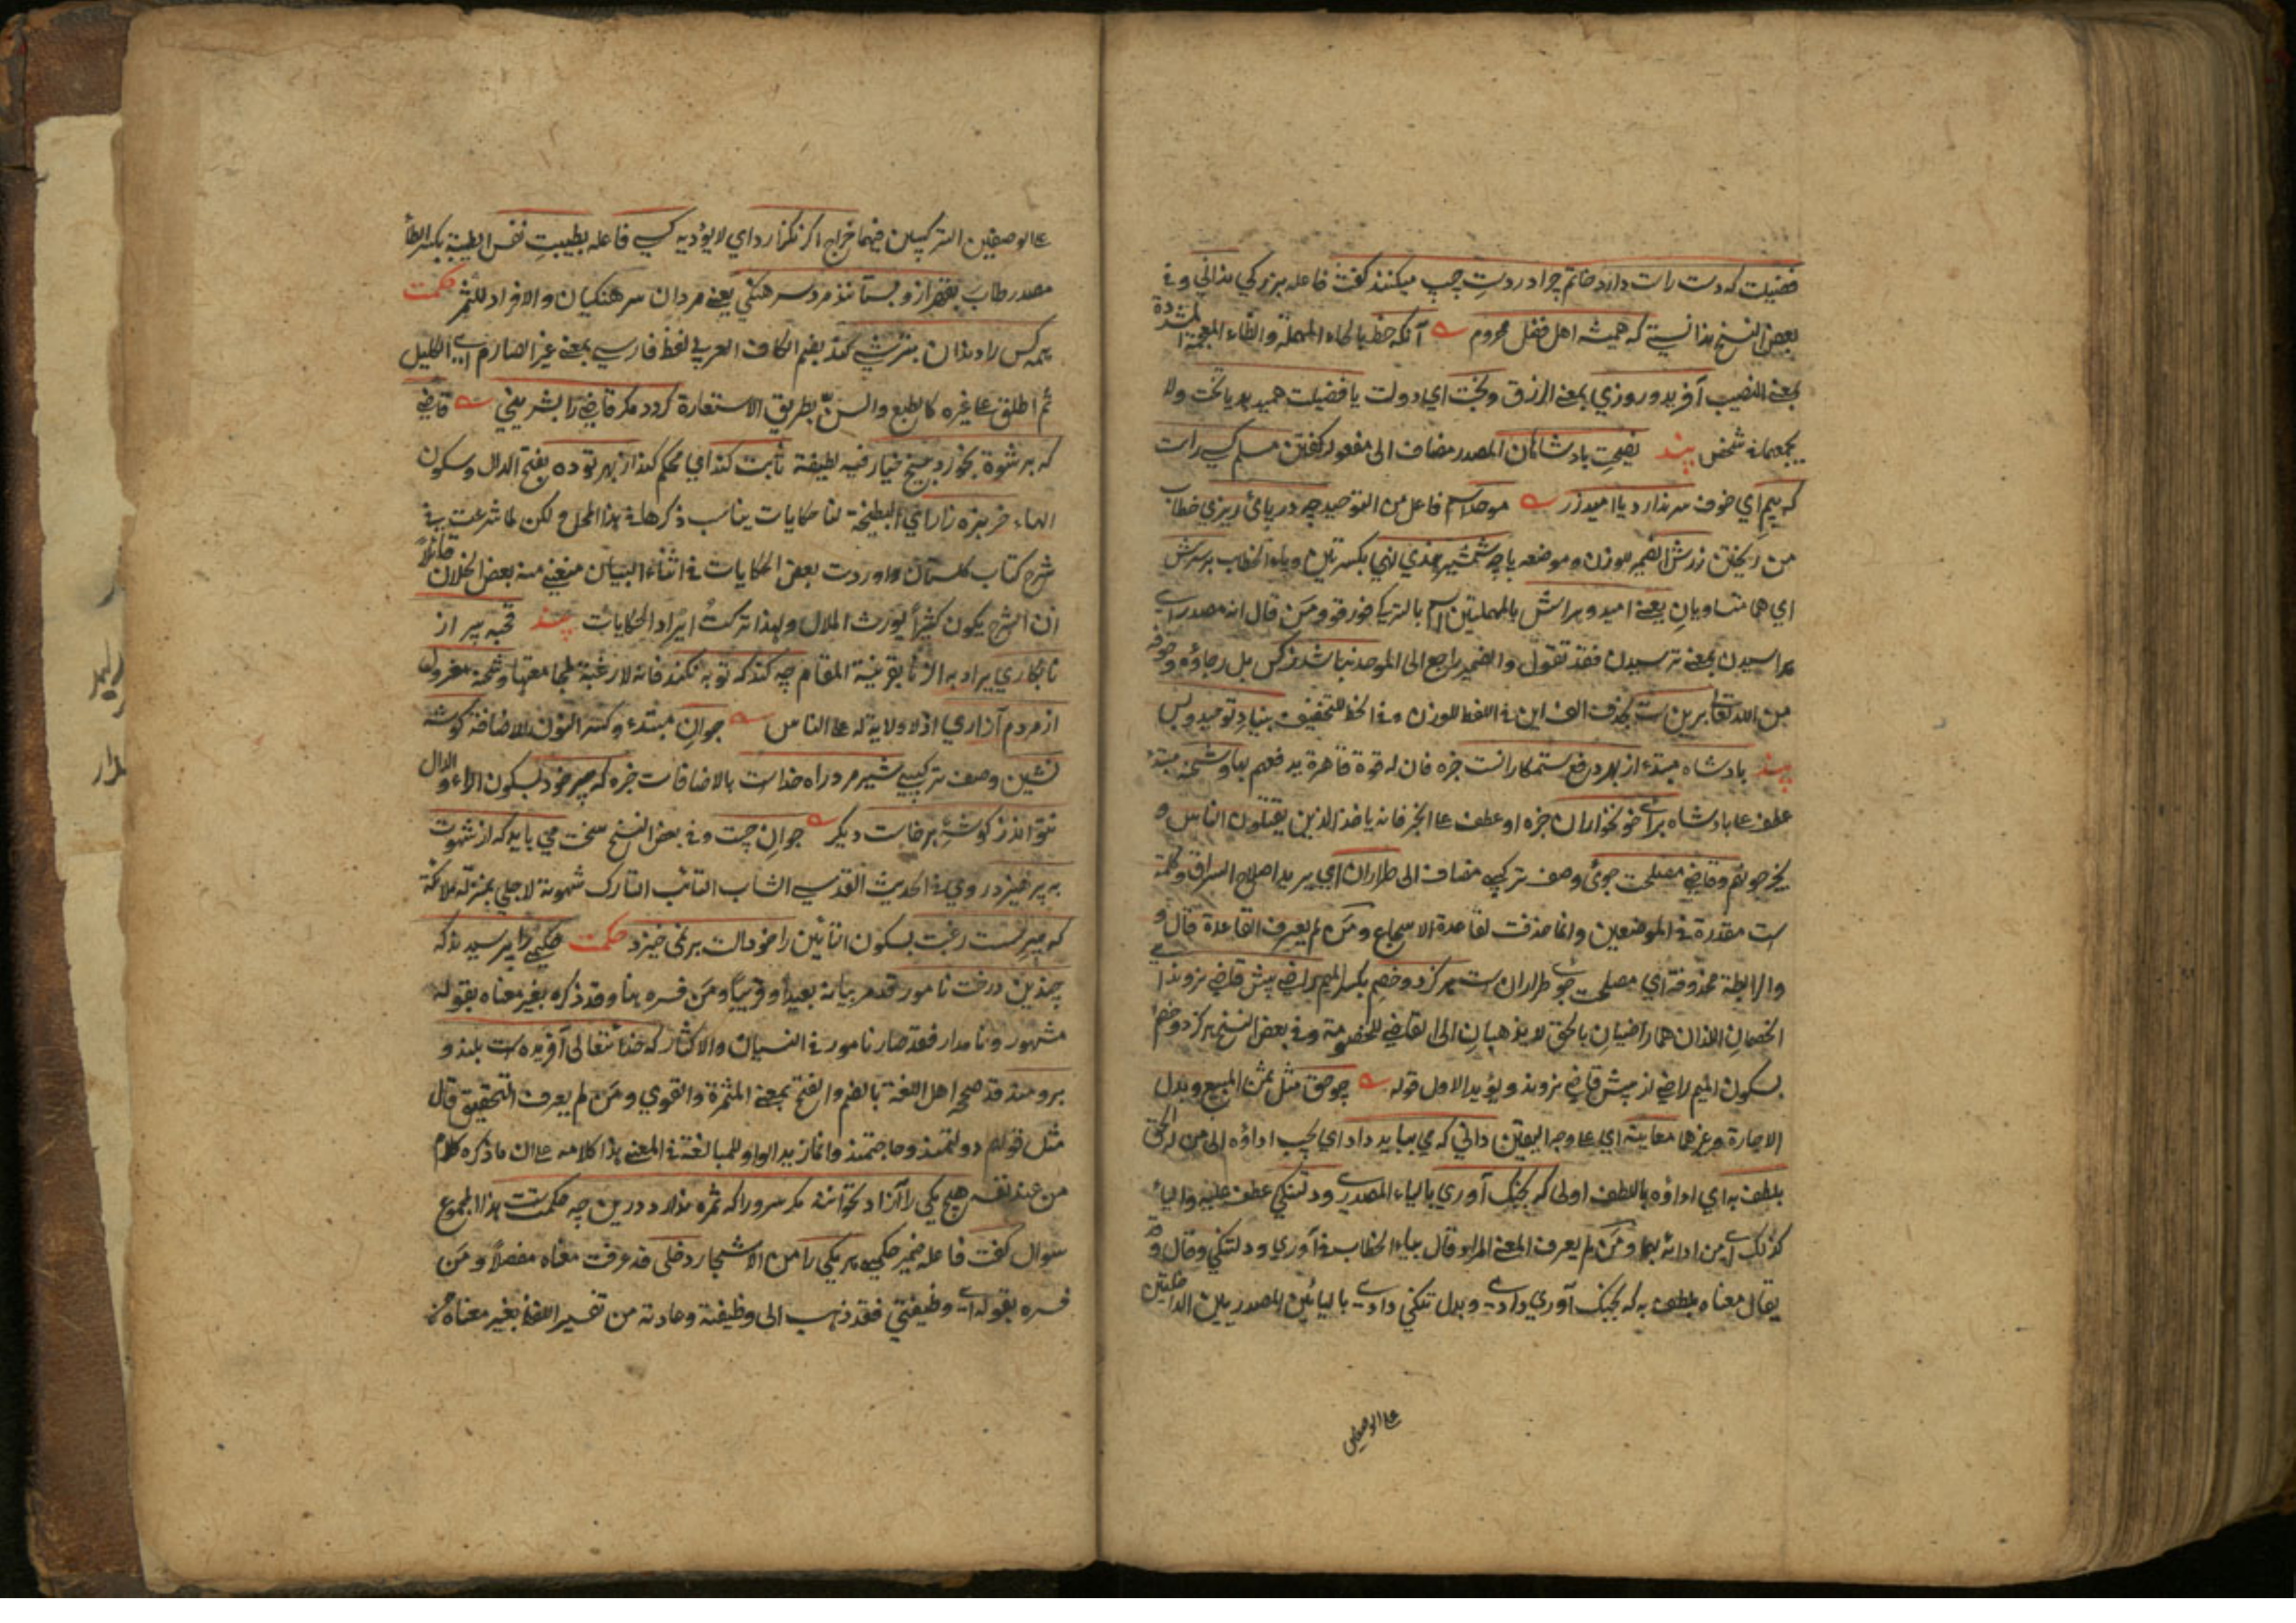 فضيلت كه دست راست دارد خاتم چرا در دست چپ ميكنند كفت فاعله بزركي نداني وفي
بعض النسخ ندانستي كه هميشه اهل فضل محروم آنكه حظ بالحاء المهملة والظاء المعجمة المشددة
بمعنى النصيب آفريد وروزي بمعنى الرزق وبخت اي دولت يا فضيلت هميدهد يا تخت ولا
يجمعهما في شخص پند نصيحت پادشاهان المصدر مضاف الى مفعوله كفتن مسلم كسي راست
كه بيم اي خوف سر ندارد يا اميد زر موحد اسم فاعل من التوحيد چه در پاي ريزي خطاب
من ريختن زرش الضمير للوزن وموضعه يا چه شمشير هندي نهي بكسرتين وياء الخطاب بر سرش
اي هما متساويان يعني اميد وهراسش بالمهملتين اسم بالتركي قورقو ومن قال انه مصدر اي
هراسيدن بمعنى ترسيدن فقد تقول والضمير راجع الى الموحد نباشد ز كس بل رجاؤه وخوفه
من الله تعالى برين است بحذف الف اين في اللفظ للوزن وفي الخط للتخفيف بنياد توحيد وبس
پند پادشاه مبتدء از بهر دفع ستمكارانست خبره فان له قوة قاهرة يدفعهم بها وشحنه مبتدء
عطف على پادشاه براي خونخواران خبره او عطف على الخبر فانه ياخذ الذين يقتلون الناس و
يخرجونهم وقاضي مصلحت جوي وصف تركيبي مضاف الى طراران اي يريد اصلاح السراق وكلمة
است مقدرة في الموضعين وانما حذفت لقاعدة الاسجاع ومن لم يعرف القاعدة قال و
والرابطة محذوفة اي مصلحت جوي طراران است هركز دو خصم بكسر الميم راضي پيش قاضي نروند اي
الخصمان اللذان هما راضيان بالحق لا يذهبان الى القاضي للخصومة وفي بعض النسخ هركز دو خصم
بسكون الميم راضي از پيش قاضي نروند ويؤيد الاول قوله چو حق مثل ثمن المبيع وبدل
الاجارة وغيرهما معاينة اي على وجه اليقين داني كه مي ببايد داد اي يجب اداؤه الى من له الحق
بلطف به اي اداؤه باللطف اولى كه بجنك آوري بالياء المصدري ودلتنكي عطف عليه والياء
كذلك اي من ادائه بهما ومن لم يعرف المعنى المراد قال بياء الخطاب في آوري ودلتنكي وقال وقد
يقال معناه بلطف به كه بجنك آوري دادي وبدل تنكي دادي باليائين المصدريين الداخلتين
على الوصفين
على الوصفين التركيبيين فيهما خراج اكر نكزارد اي لا يؤديه كسي فاعله بطيبت نفس الطيبة بكسر الطاء
مصدر طاب بقهر ازو بستانند مرد سرهنكي يعني مردان سرهنكيان والافراد للشعر حكمت
همه كس را دندان بترشي كند بضم الكاف العربي لفظ فارسي بمعنى غير الصارم اي الكليل
ثم اطلق على غيره كالطبع والسن بطريق الاستعارة كردد مكر قاضي را بشيريني قاضي
كه برشوة بخورد پنج خيار فيه لطيفة ثابت كند اي محكم كند از بهر تو ده بفتح الدال وسكون
الهاء خربزه زار اي البطيخة لنا حكايات يناسب ذكرها في هذا المحل ولكن لما شرعت في
شرح كتاب كلستان واوردت بعض الحكايات في اثناء البيان منعني منه بعض الخلان قائلا
ان الشرح يكون كثيرا يورث الملال ولهذا تركت ايراد الحكايات پند قحبه پير از
نابكاري يراد به الزنا بقرينة المقام چه كند كه توبه نكند فانه لا رغبة لجامعتها وشحنه معزول
از مردم آزاري اذ لا ولاية له على الناس جوان مبتدء وكسر النون للاضافة كوشه
نشين وصف تركيبي شير مرد راه خداست بالاضافات خبره كه پير خود بسكون الراء والدال
نتواند ز كوشه برخاست ديكر جوان چست وفي بعض النسخ سخت مي بايد كه از شهوت
بپرهيزد روي في الحديث القدسي الشاب التائب التارك شهوته لاجلي بمنزلة ملائكة
كه پير سست رغبت بسكون التائين را خود آلت بر نمي خيزد حكمت حكيمي را پرسيدند كه
چندين درخت نامور قد مر بيانه بعيدا وقريبا ومن فسره هنا وقد ذكره بغير معناه بقوله
مشهور ونامدار فقد صار نامور في النسيان والاكثار كه خداي تعالى آفريده است بلند و
برومند قد صححه اهل اللغة بالضم والفتح بمعنى المثمرة والقوي ومن لم يعرف التحقيق قال
مثل قولهم دولتمند وحاجتمند وانما زيد الواو للمبالغة في المعنى هذا كلامه على ان ما ذكره كلام
من عند نفسه هيچ يكي را آزاد نخوانند مكر سرو را كه ثمره ندارد درين چه حكمتست هذا المجموع
سوال كفت فاعله ضمير حكيم هر يكي را من الاشجار دخلي قد عرفت معناه مفصلا ومن
فسره بقوله اي وظيفتي فقد ذهب الى وظيفته وعادته من تفسير اللفظ بغير معناه